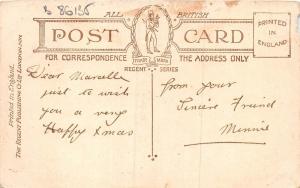 B 8G135
ALL BRITISH
POST CARD
PRINTED
IN
ENGLAND
FOR CORRESPONDENCE THE ADDRESS ONLY
TRADE MARK
REGENT SERIES
Printed in England.
THE REGENT PUBLISHING Co Ld LONDON, NW
Dear Marcella
just to wish
you a very
Happy Xmas
from your
Sincere Friend
Minnie